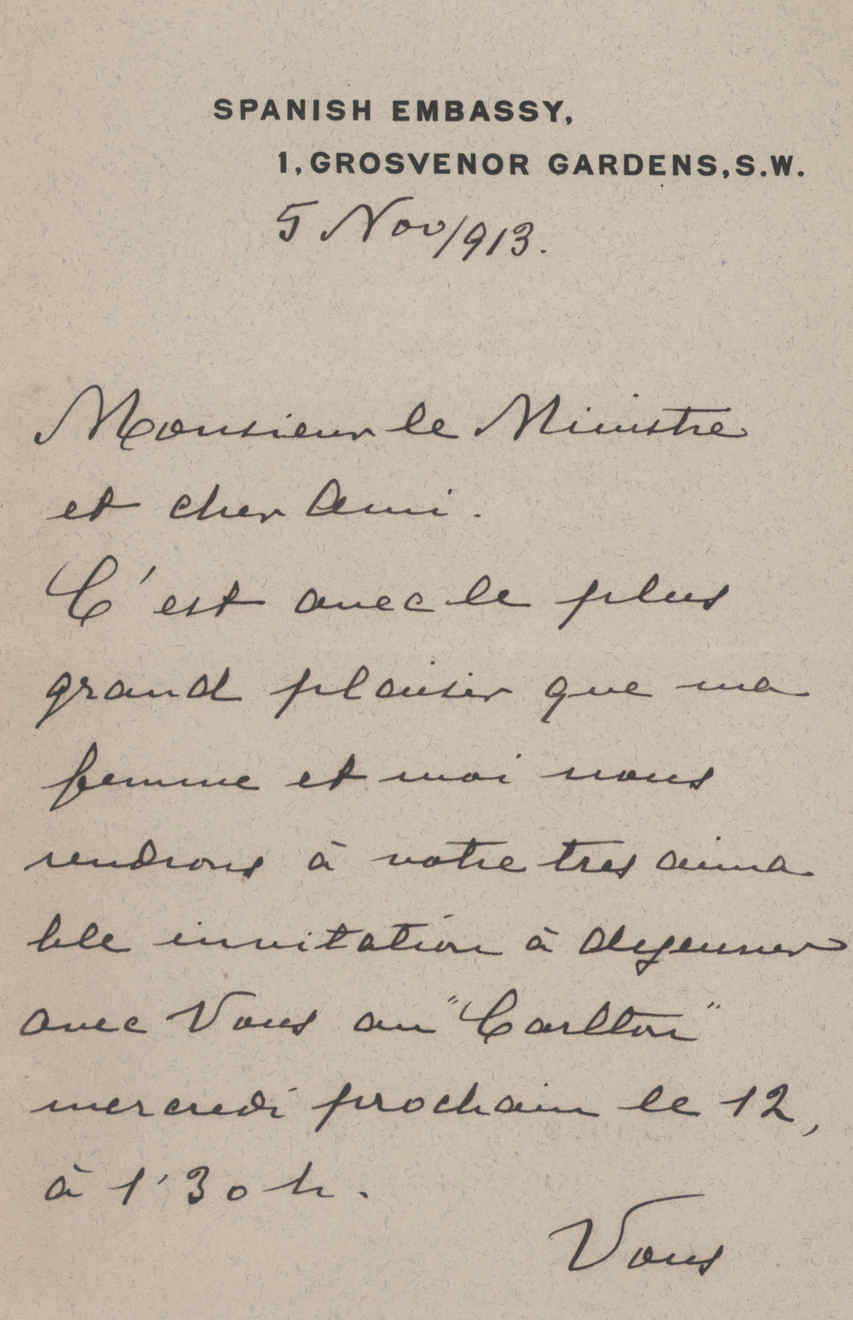 SPANISH EMBASSY,
1, GROSVENOR GARDENS, S.W.
5 Nov 1913.
Monsieur le Ministre
et cher Ami.
C'est avec le plus
grand plaisir que ma
femme et moi nous
rendrons à votre tres aima
ble invitation à dejeuner
avec Vous au "Carlton"
mercredi prochain le 12,
à 1'30 h.
Vous